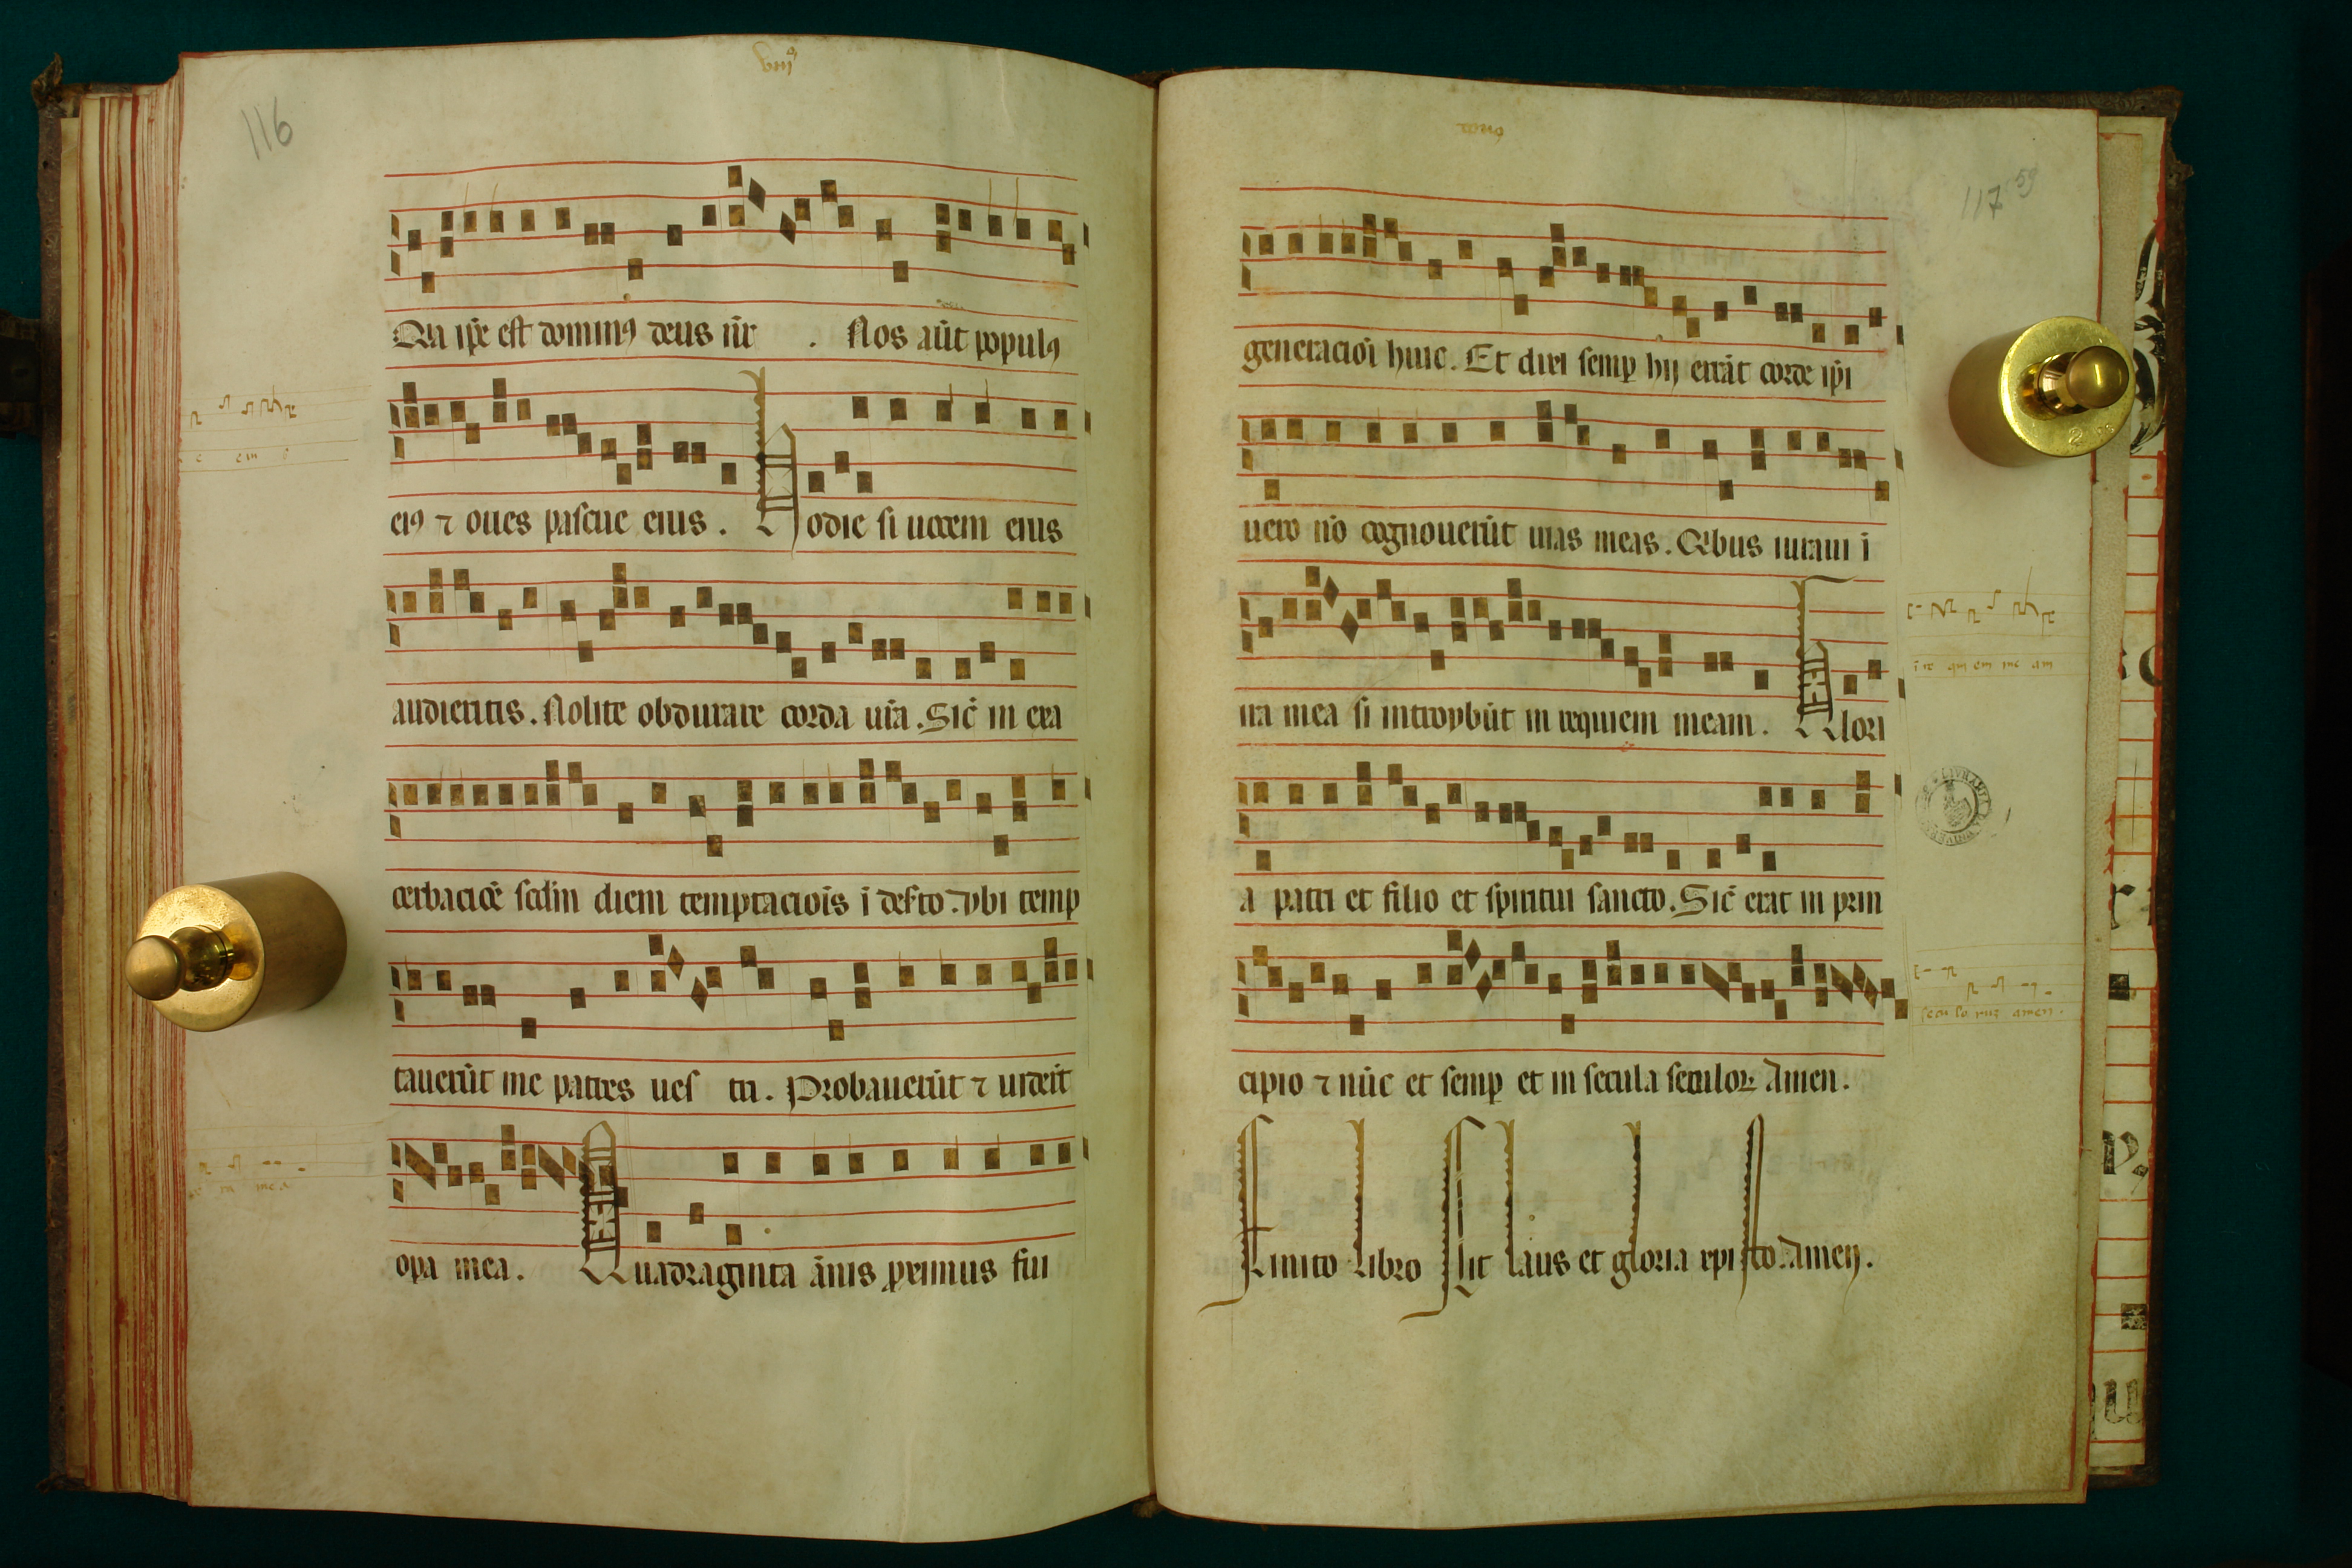 viijº
116
Qia ip̄e est dominꝰ deus nr̄ . Nos aūt populꝰ
eiꝰ ⁊ oues pascue eius . Hodie si uocem eius
audieritis . Nolite obdurare corda ur̄a . Sic̄ in exa
cerbaciōe scd̄m diem temptaciōis ī deserto . vbi temp
tauerūt me patres ues tri . Probauerūt ⁊ uiderūt
opa mea . Quadraginta ānis proximus fui
117 59
generaciōi huic . Et dixi semꝑ hij errāt corde ip̄i
uero nō cognouerūt uias meas . Qibus iuraui ī
ira mea si introybūt in requiem meam . Glori
a patri et filio et spiritui sancto . Sic̄ erat in prin
cipio ⁊ nūc et semꝑ et in secula seculoꝝ Amen .
Finito libro sit laus et gloria xpisto . Amen .
ī re qui em me am
secu lo rum amen .